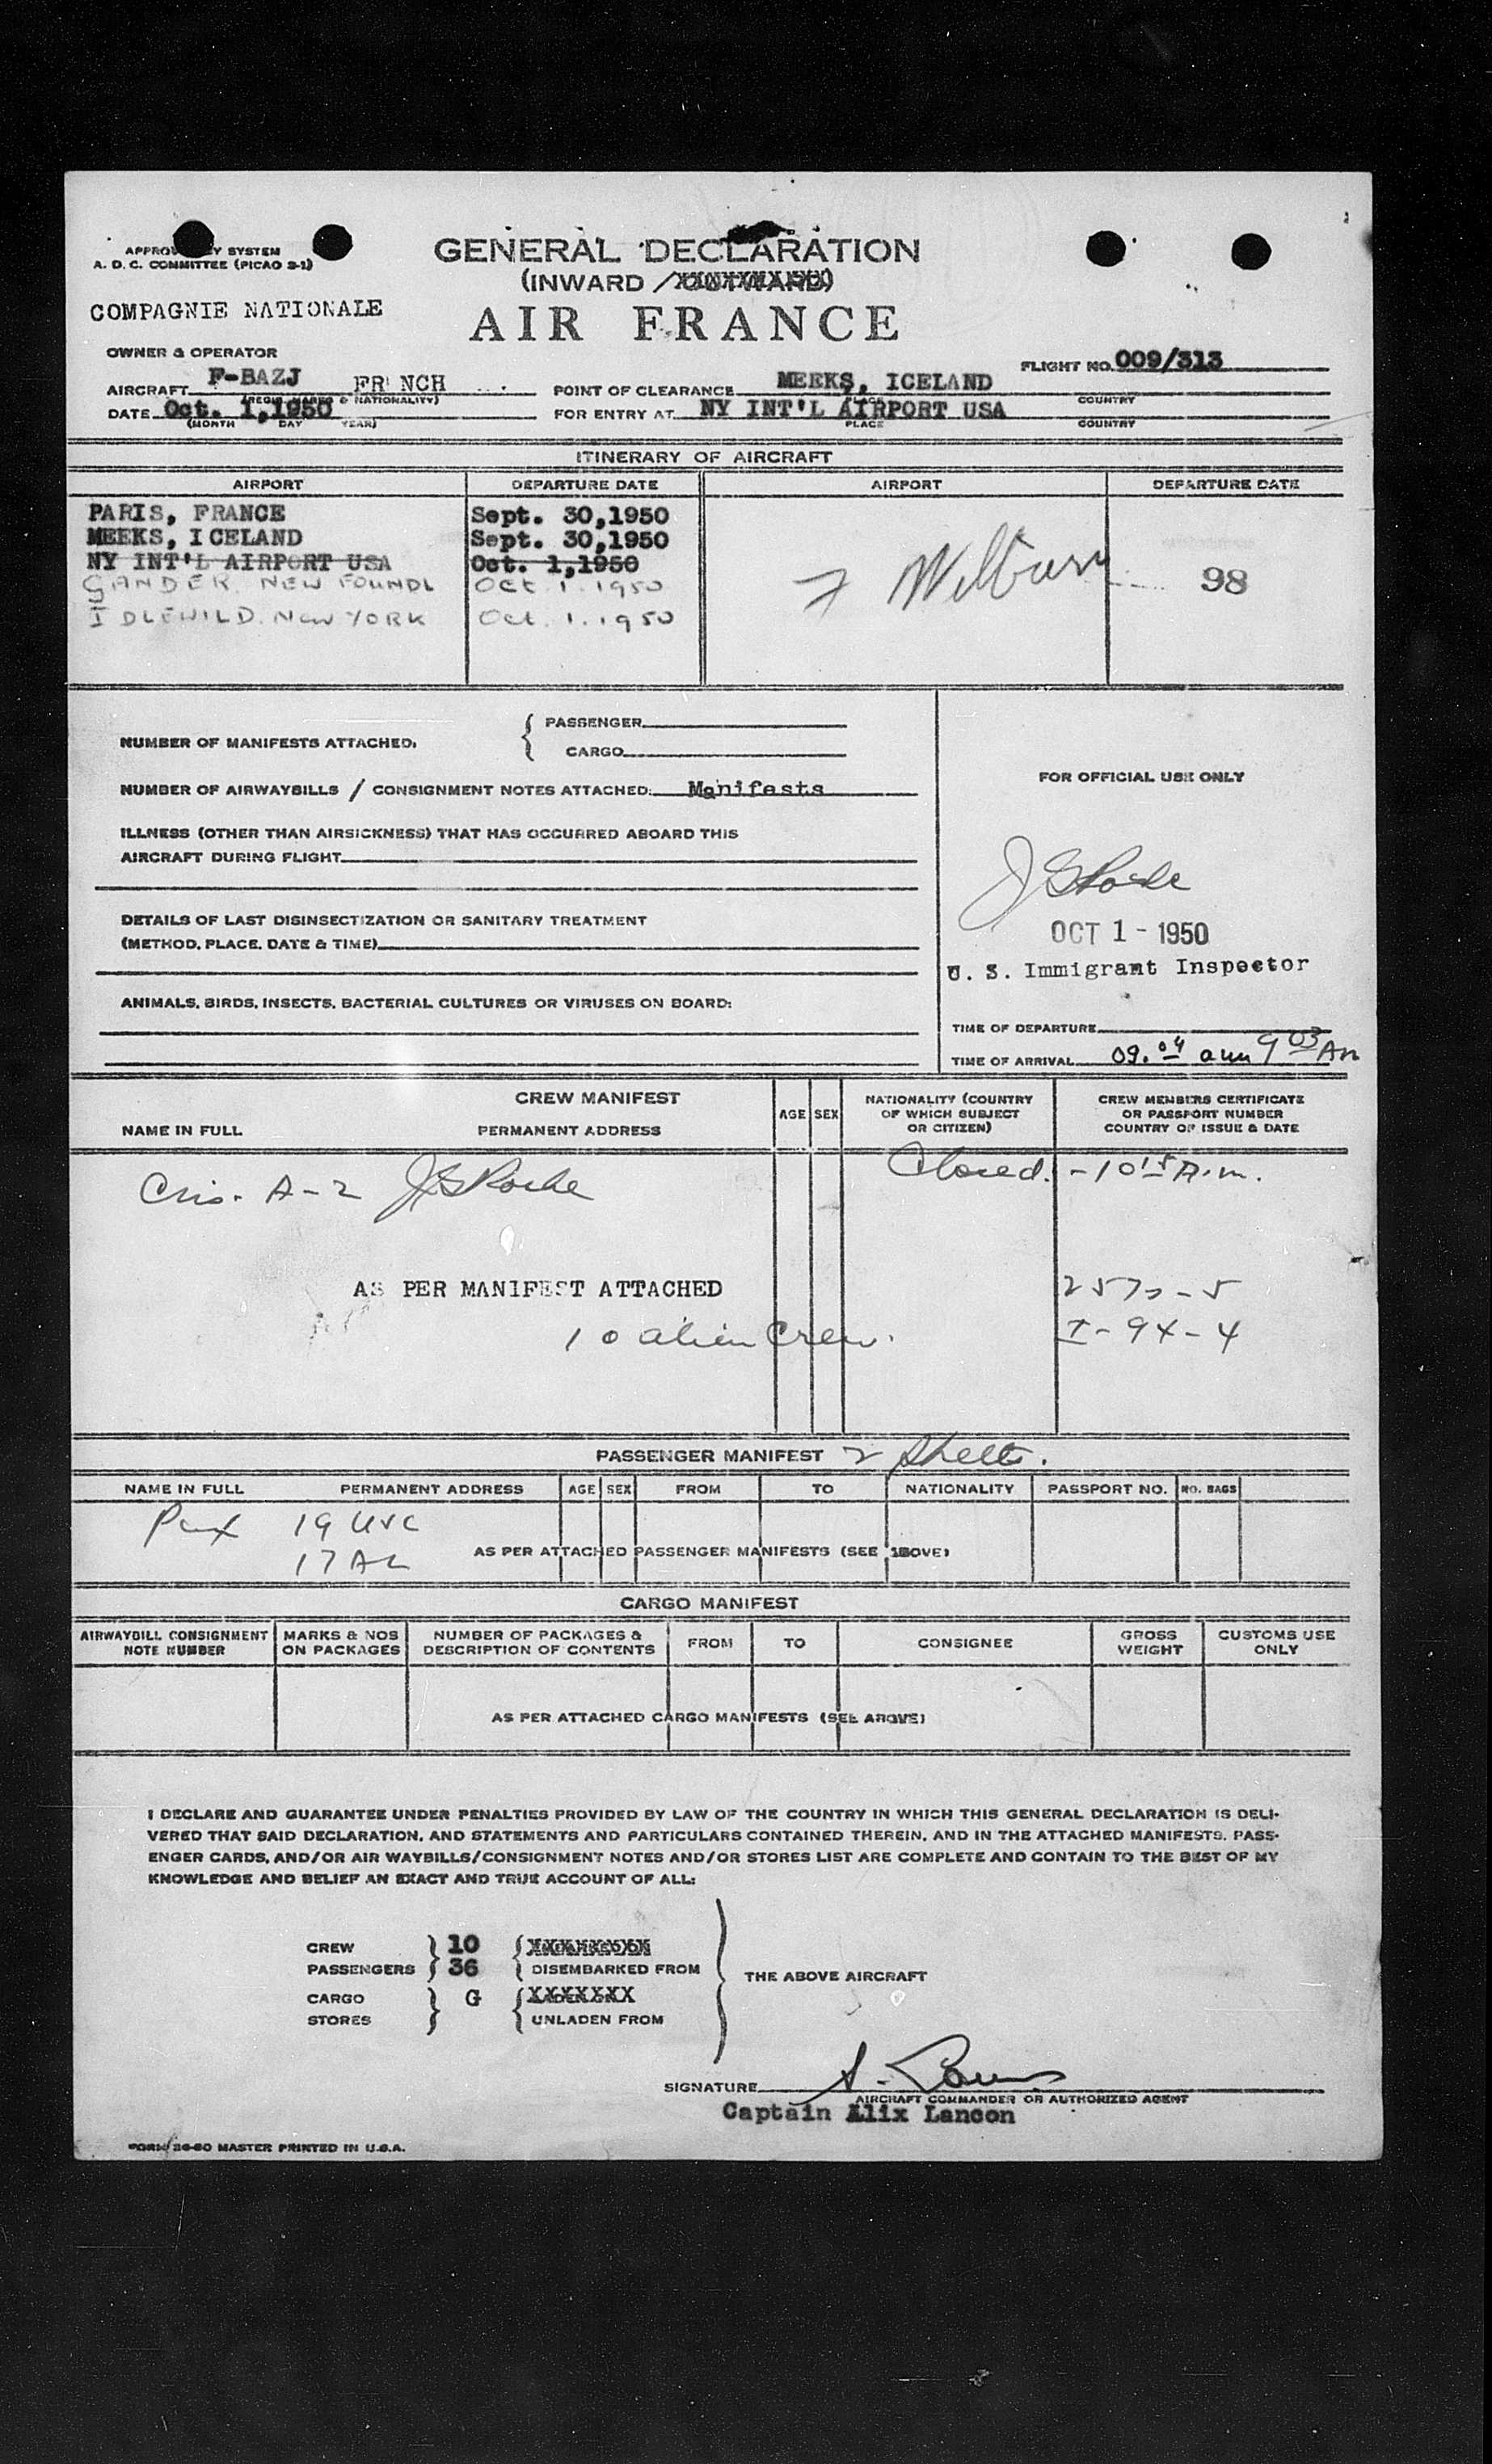 GENERAL DECLARATION
(INWARD /OUTWARD)
A. D. C. COMMITTEE (PICAO S-1)
COMPAGNIE NATIONALE
AIR FRANCE
OWNER & OPERATOR
FLIGHT NO. 009/313
AIRCRAFT F-BAZJ FR NCH POINT OF CLEARANCE MEEKS, ICELAND
(REGIS. MARKS & NATIONALITY) PLACE COUNTRY
DATE Oct. 1,1950 FOR ENTRY AT NY INT'L AIRPORT USA
(MONTH DAY YEAR) PLACE COUNTRY
ITINERARY OF AIRCRAFT
AIRPORT DEPARTURE DATE AIRPORT DEPARTURE DATE
PARIS, FRANCE Sept. 30,1950
MEEKS, ICELAND Sept. 30,1950
NY INT'L AIRPORT USA Oct. 1,1950
GANDER NEW FOUNDL OCT. 1. 1950
IDLEWILD. NEW YORK Oct. 1. 1950
Wilburn 98
NUMBER OF MANIFESTS ATTACHED. { PASSENGER
CARGO
NUMBER OF AIRWAYBILLS / CONSIGNMENT NOTES ATTACHED: Manifests
ILLNESS (OTHER THAN AIRSICKNESS) THAT HAS OCCURRED ABOARD THIS
AIRCRAFT DURING FLIGHT
DETAILS OF LAST DISINSECTIZATION OR SANITARY TREATMENT
(METHOD, PLACE, DATE & TIME)
ANIMALS, BIRDS, INSECTS, BACTERIAL CULTURES OR VIRUSES ON BOARD:
FOR OFFICIAL USE ONLY
OCT 1 - 1950
U. S. Immigrant Inspector
TIME OF DEPARTURE
TIME OF ARRIVAL 09.04 am 9 03 AM
CREW MANIFEST
NAME IN FULL PERMANENT ADDRESS AGE SEX NATIONALITY (COUNTRY OF WHICH SUBJECT OR CITIZEN) CREW MEMBERS CERTIFICATE OR PASSPORT NUMBER COUNTRY OF ISSUE & DATE
A-2 Closed. - 10 15 A.m.
AS PER MANIFEST ATTACHED
10 alien Crew.
I-94-4
PASSENGER MANIFEST 2 Sheets.
NAME IN FULL PERMANENT ADDRESS AGE SEX FROM TO NATIONALITY PASSPORT NO. NO. BAGS
Pax 19 USC
17 AL
AS PER ATTACHED PASSENGER MANIFESTS (SEE ABOVE)
CARGO MANIFEST
AIRWAYBILL CONSIGNMENT NOTE NUMBER MARKS & NOS ON PACKAGES NUMBER OF PACKAGES & DESCRIPTION OF CONTENTS FROM TO CONSIGNEE GROSS WEIGHT CUSTOMS USE ONLY
AS PER ATTACHED CARGO MANIFESTS (SEE ABOVE)
I DECLARE AND GUARANTEE UNDER PENALTIES PROVIDED BY LAW OF THE COUNTRY IN WHICH THIS GENERAL DECLARATION IS DELI-
VERED THAT SAID DECLARATION, AND STATEMENTS AND PARTICULARS CONTAINED THEREIN, AND IN THE ATTACHED MANIFESTS, PASS-
ENGER CARDS, AND/OR AIR WAYBILLS/CONSIGNMENT NOTES AND/OR STORES LIST ARE COMPLETE AND CONTAIN TO THE BEST OF MY
KNOWLEDGE AND BELIEF AN EXACT AND TRUE ACCOUNT OF ALL:
CREW 10
PASSENGERS 36 DISEMBARKED FROM
THE ABOVE AIRCRAFT
CARGO G
STORES UNLADEN FROM
SIGNATURE
AIRCRAFT COMMANDER OR AUTHORIZED AGENT
Captain Alix Lancon
FORM 36-50 MASTER PRINTED IN U.S.A.